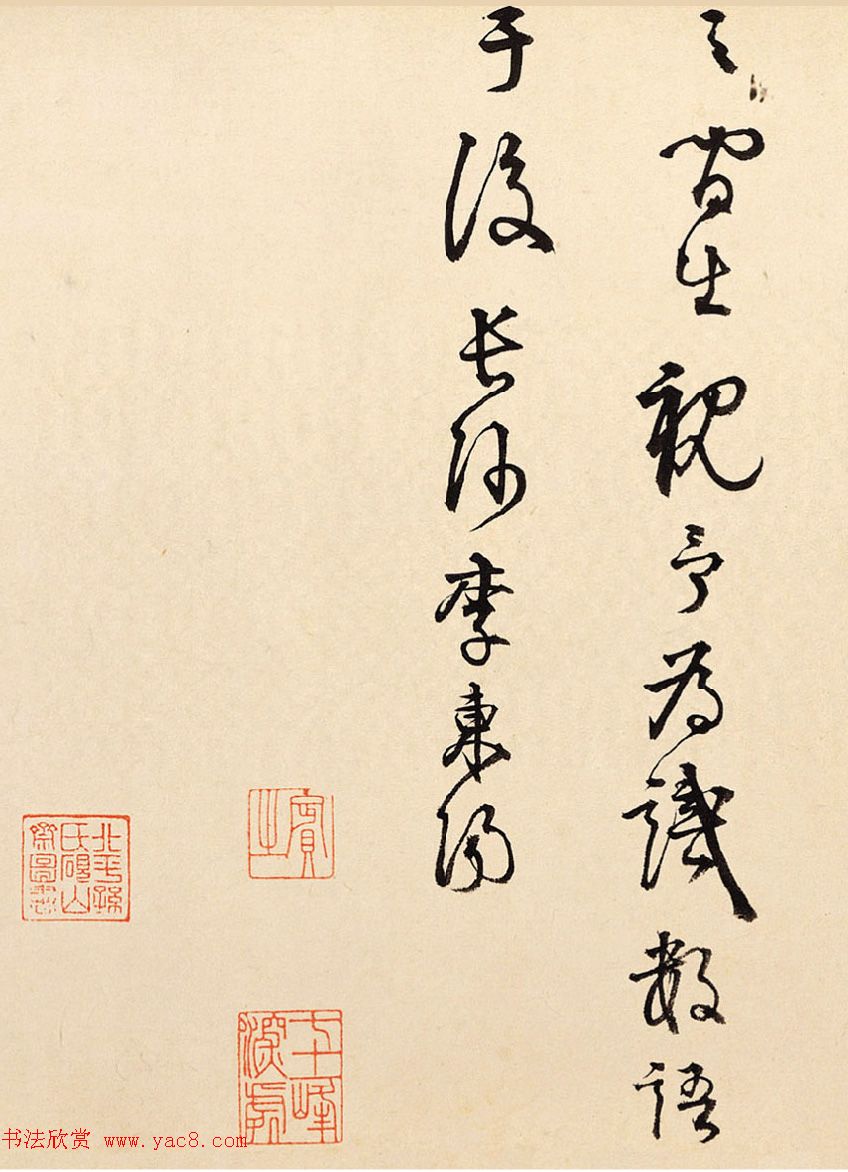 之
生視予為識數語
于後長沙李東陽
賓之
七十二峰深處
北平孫氏硯山齋圖書
书法欣赏 www.yac8.com